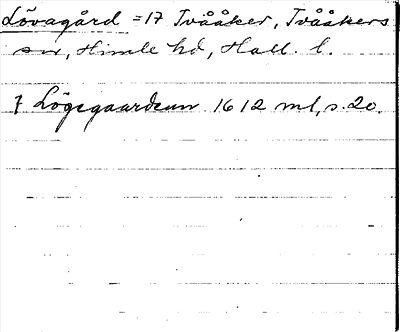 Lövagård = 17 Tvååker, Tvååkers
sn, Himle hd, Hall. l.
Lögegaardenn 1612 ml, s. 20.